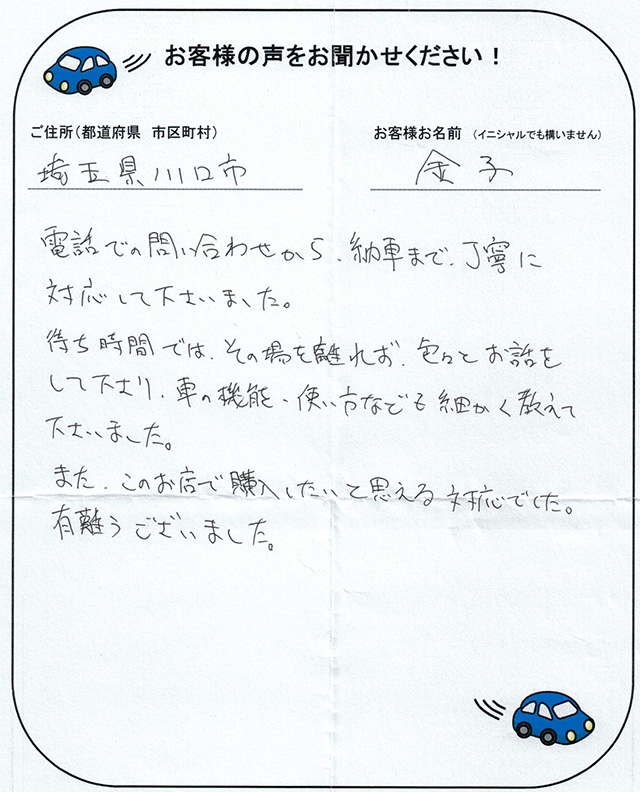 お客様の声をお聞かせください！
ご住所（都道府県　市区町村）
お客様お名前　（イニシャルでも構いません）
埼玉県川口市
金子
電話での問い合わせから、納車まで、丁寧に
対応して下さいました。
待ち時間では、その場を離れず、色々とお話を
して下さり、車の機能、使い方なども細かく教えて
下さいました。
また、このお店で購入したいと思える対応でした。
有難うございました。